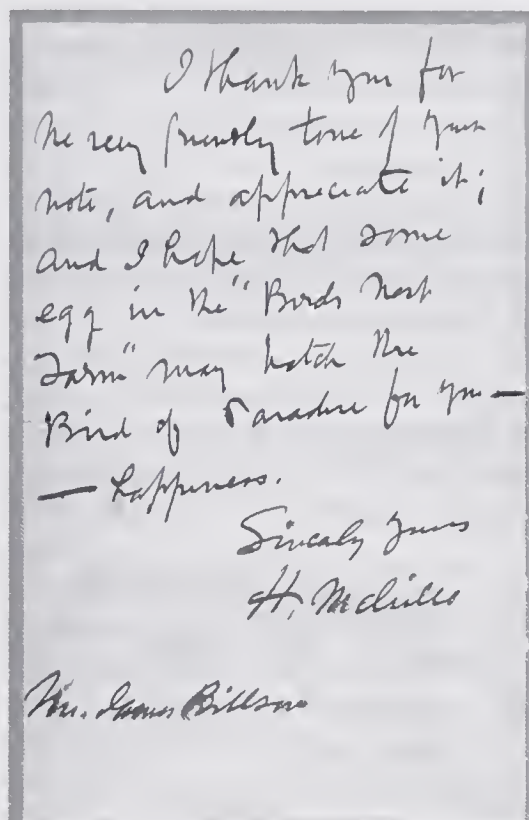 I thank you for
the very friendly tone of your
note, and appreciate it;
and I hope that some
egg in the "Birds Nest
Farm" may hatch the
Bird of Paradise for you —
— happiness.
Sincerely Yours
H. Melville
Mr. James Billson